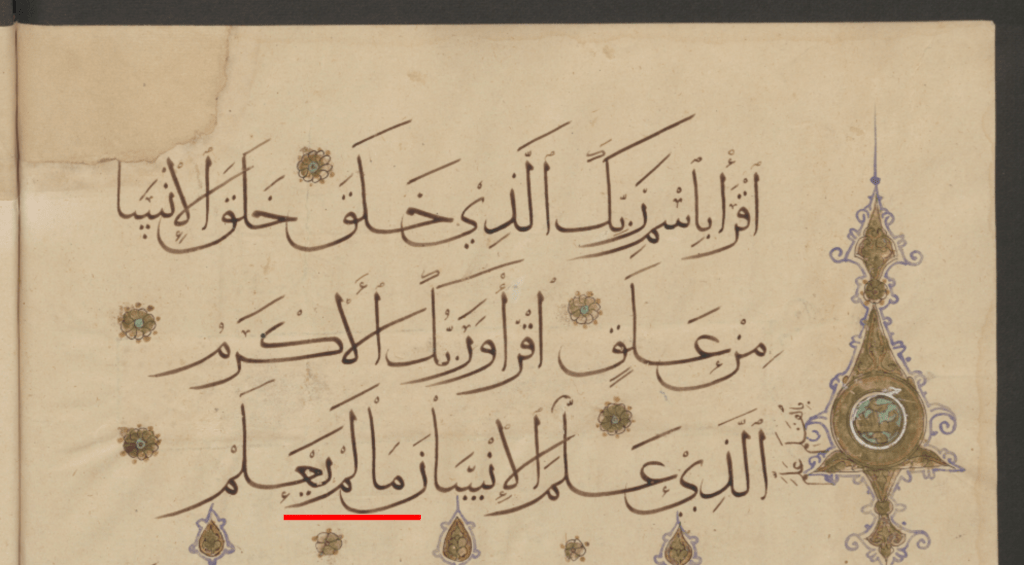 اقْرَأْ بِاسْمِ رَبِّكَ الَّذِي خَلَقَ خَلَقَ الْإِنْسَا
مِنْ عَلَقٍ اقْرَأْ وَرَبُّكَ الْأَكْرَمُ
الَّذِي عَلَّمَ الْإِنْسَانَ مَا لَمْ يَعْلَمْ
بالقلم علم